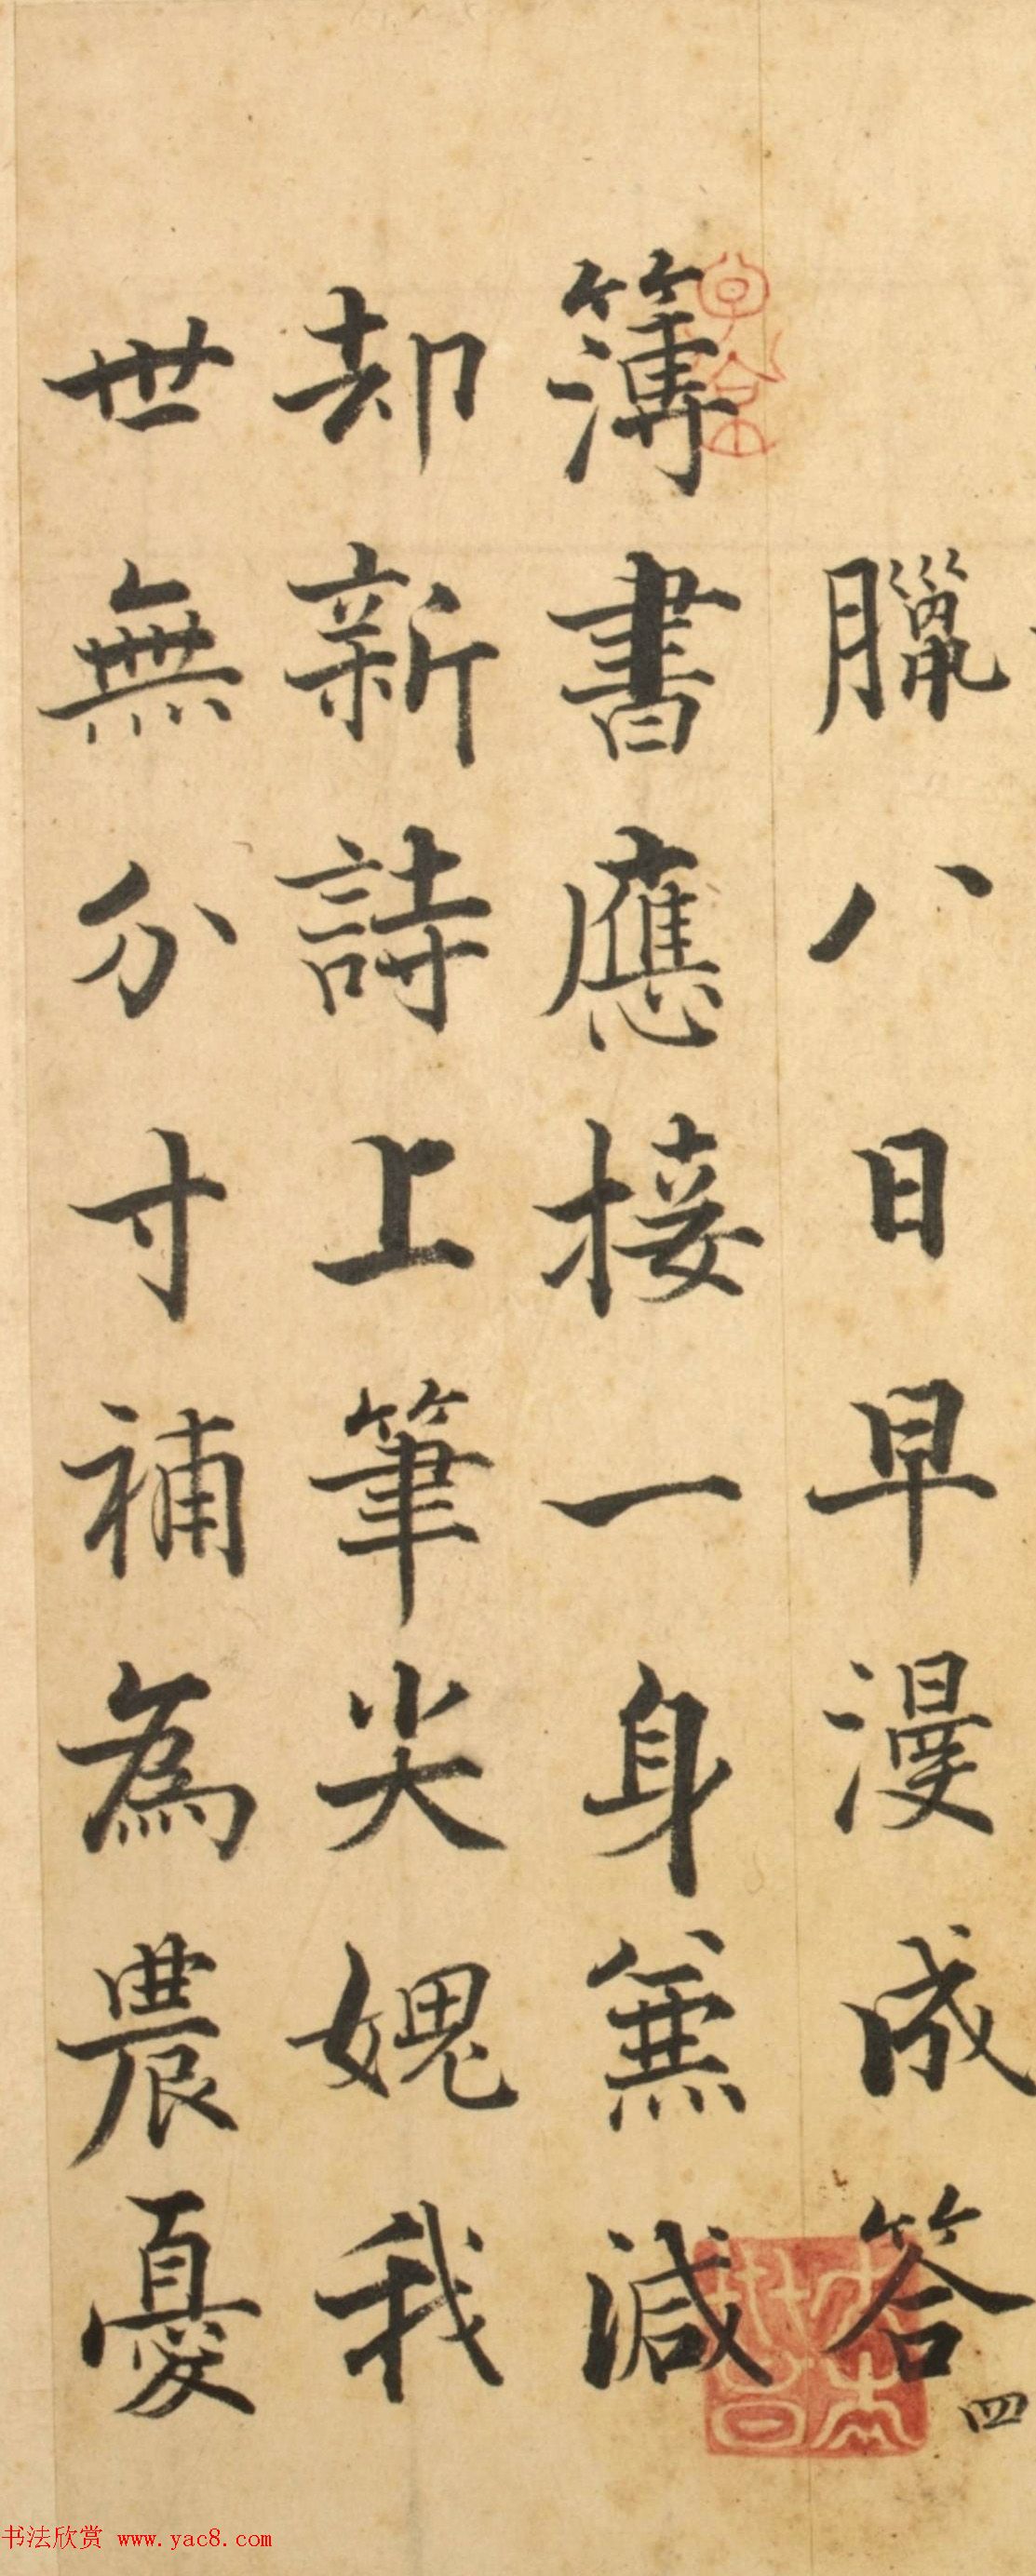 臘八日早漫成答
四
簿書應接一身無減
却新詩上筆尖媿我
世無分寸補為農憂
书法欣赏 www.yac8.com